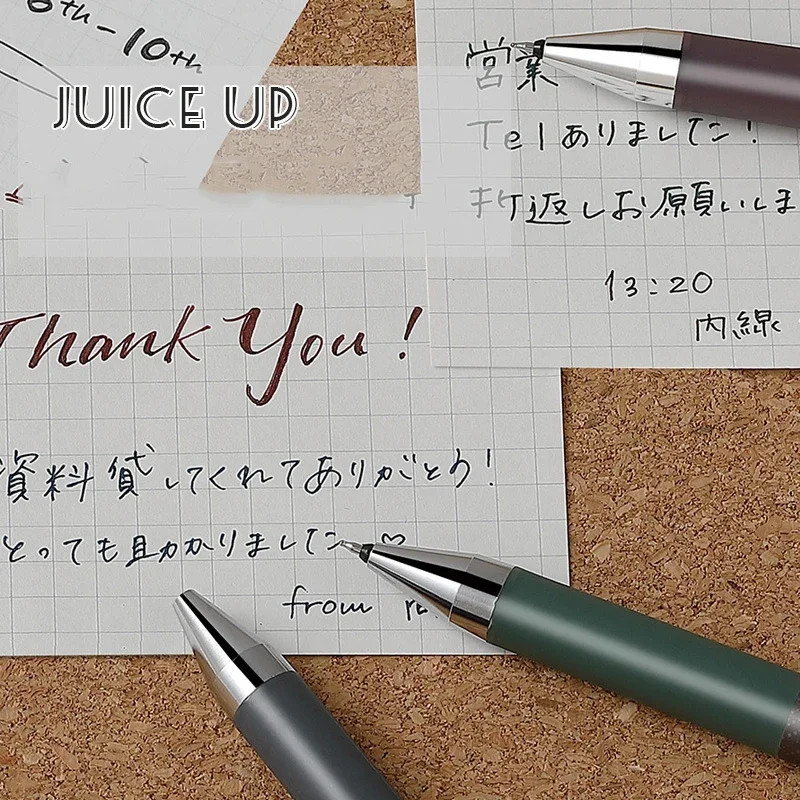 6th-10th
JUICE UP
営業
Telありました!
折返しお願いしま
13:20
内線
Thank You!
資料貸してくれてありがとう!
とっても助かりました ♡
from